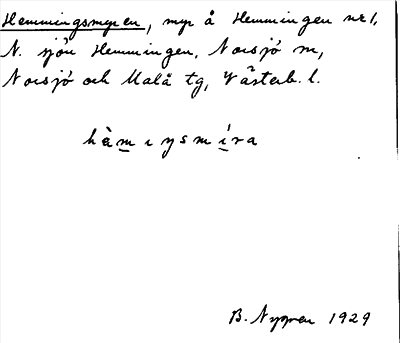 Hemmingsmyren, myr å Hemmingen nr 1,
N. sjön Hemmingen, Norsjö sn,
Norsjö och Malå tg, Västerb. l.
hèmıŋsmíra
B. Nygren 1929